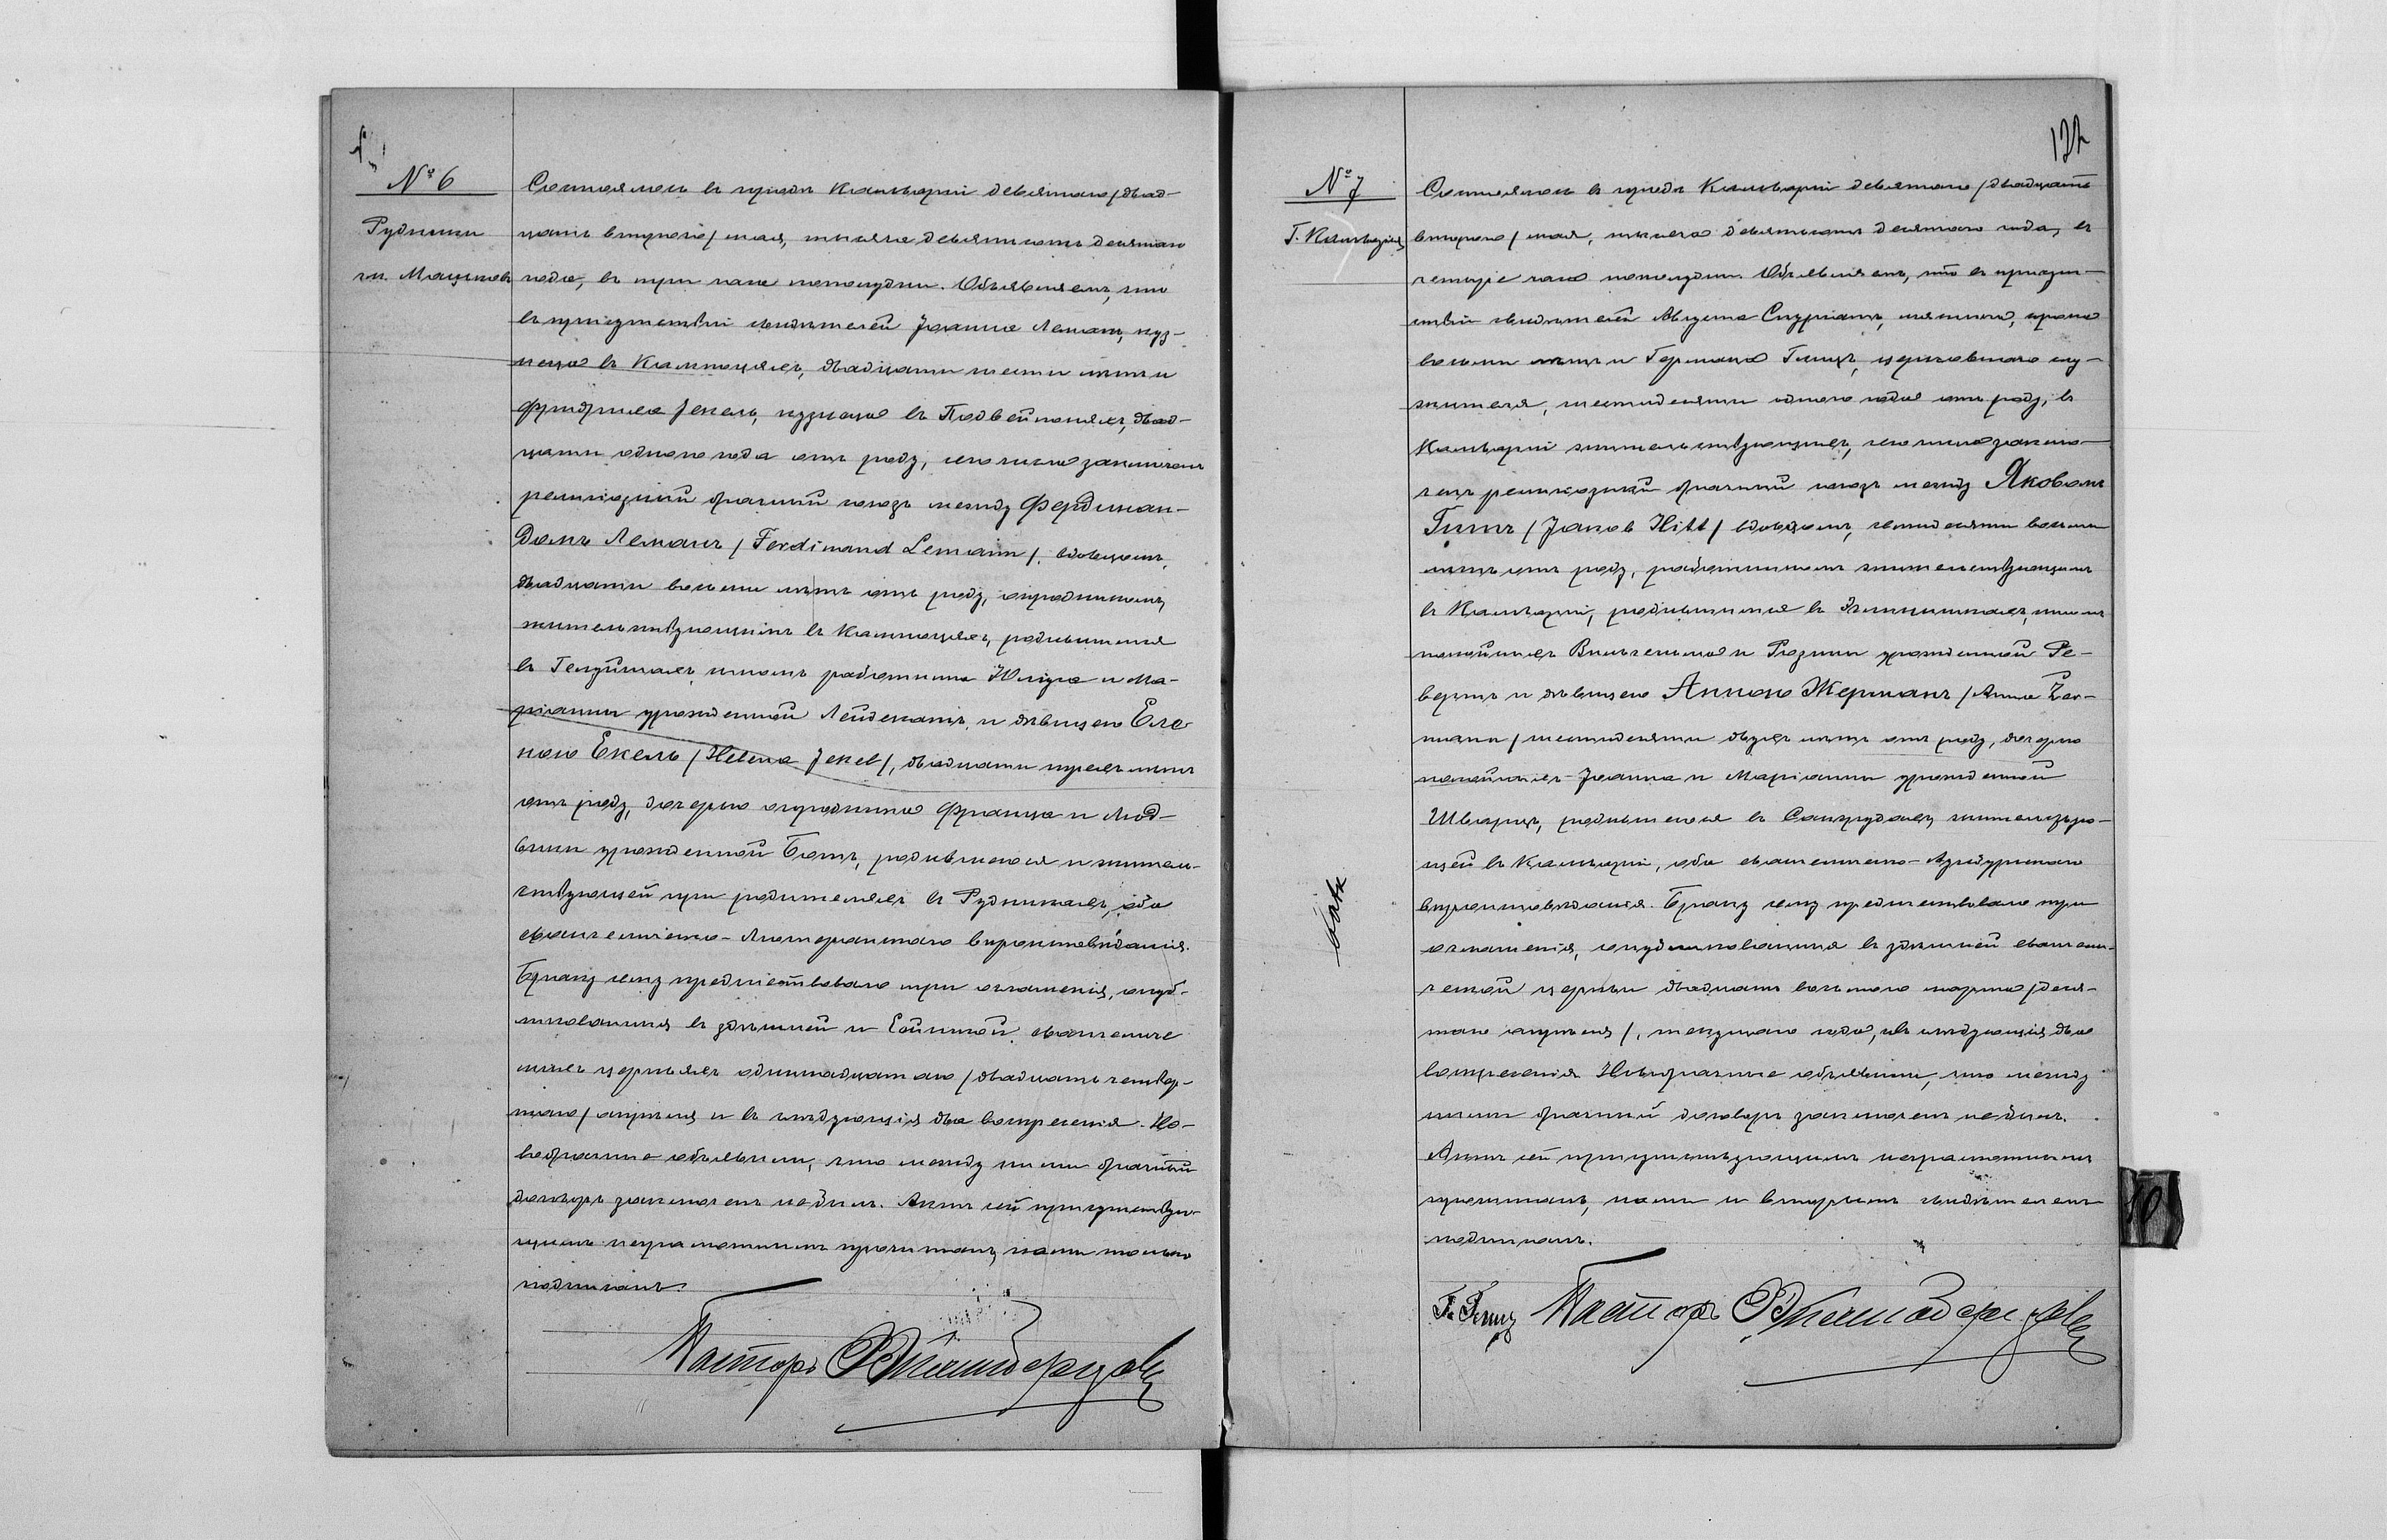 № 6
Рудники
гм.
Состоялось въ городѣ Кальваріи девятаго /двад-
цать втораго/ мая, тысяча девятьсотъ девятаго
года, въ три часа пополудни. Объявляемъ, что
въ присутствіи свидѣтелей Іоанна Леманъ, куз-
неца въ двадцати шести лѣтъ и
Фридриха Јекель, кузнеца въ двад-
цати одного года отъ роду, сего числа заключенъ
религіозный брачный союзъ между Фердинан-
домъ Леманъ / Ferdinand Lemann /, вдовцомъ,
двадцати восьми лѣтъ отъ роду, огородникомъ,
жительствующимъ въ родившимся
въ сыномъ работника Юлiуса и Ма-
ріанны урожденной и дѣвицею Еле-
ною Екель / Helena Jekel /, двадцати трехъ лѣтъ
отъ роду, дочерью огородника Франца и Люд-
вики урожденной родившеюся и житель-
ствующей при родителяхъ въ Рудникахъ, оба
евангелическо-Лютеранскаго вѣроисповѣданія.
Браку сему предшествовало три оглашенія, опуб-
ликованныя въ здѣшней и евангеличе-
скихъ церквахъ одиннадцатаго /двадцать четвер-
таго/ апрѣля и въ слѣдующія два воскресенія. Но-
вобрачные объявили, что между ними брачный
договоръ заключенъ не былъ. Актъ сей присутству-
ющимъ неграмотнымъ прочитанъ, нами только
подписанъ.
Пасторъ
122
№ 7
Г. Кальварія
Состоялось въ городѣ Кальваріи девятаго /двадцать
втораго/ мая, тысяча девятьсотъ девятаго года, въ
четыре часа пополудни. Объявляемъ, что въ присут-
ствіи свидѣтелей Августа сорока
восьми лѣтъ и Германа Гинцъ, церковнаго слу-
жителя, шестидесяти одного года отъ роду, въ
Кальваріи жительствующихъ, сего числа заклю-
ченъ религіозный брачный союзъ между Яковомъ
Гиттъ / Jakob Hitt / вдовцомъ, семидесяти восьми
лѣтъ отъ роду, работникомъ жительствующимъ
въ Кальваріи, родившимся въ сыномъ
покойныхъ Вильгельма и Розины урожденной Ре-
и дѣвицею Анною Жерманъ / Anna Zer-
mann / шестидесяти двухъ лѣтъ отъ роду, дочерью
покойныхъ Іоанна и Маріанны урожденной
Шварцъ, родившеюся въ жительствую-
щей въ Кальваріи, оба евангелическо-Аугсбургскаго
вѣроисповѣданія. Браку сему предшествовало три
оглашенія, опубликованныя въ здѣшней евангели-
ческой церкви двадцать восьмого марта /деся-
таго апрѣля/, текущаго года, и въ слѣдующія два
воскресенія. Новобрачные объявили, что между
ними брачный договоръ заключенъ не былъ.
Актъ сей присутствующимъ неграмотнымъ
прочитанъ, нами и вторымъ свидѣтелемъ
подписанъ.
Г. Гинцъ Пасторъ